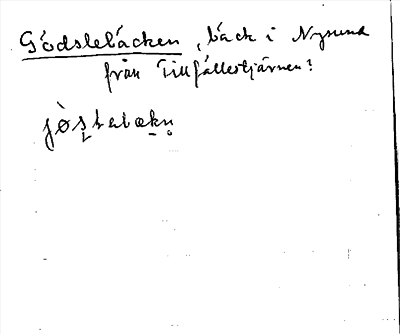 Gödslebäcken, bäck i Nysund
från Tillfällestjärnen?
jòs̱tabækn̥